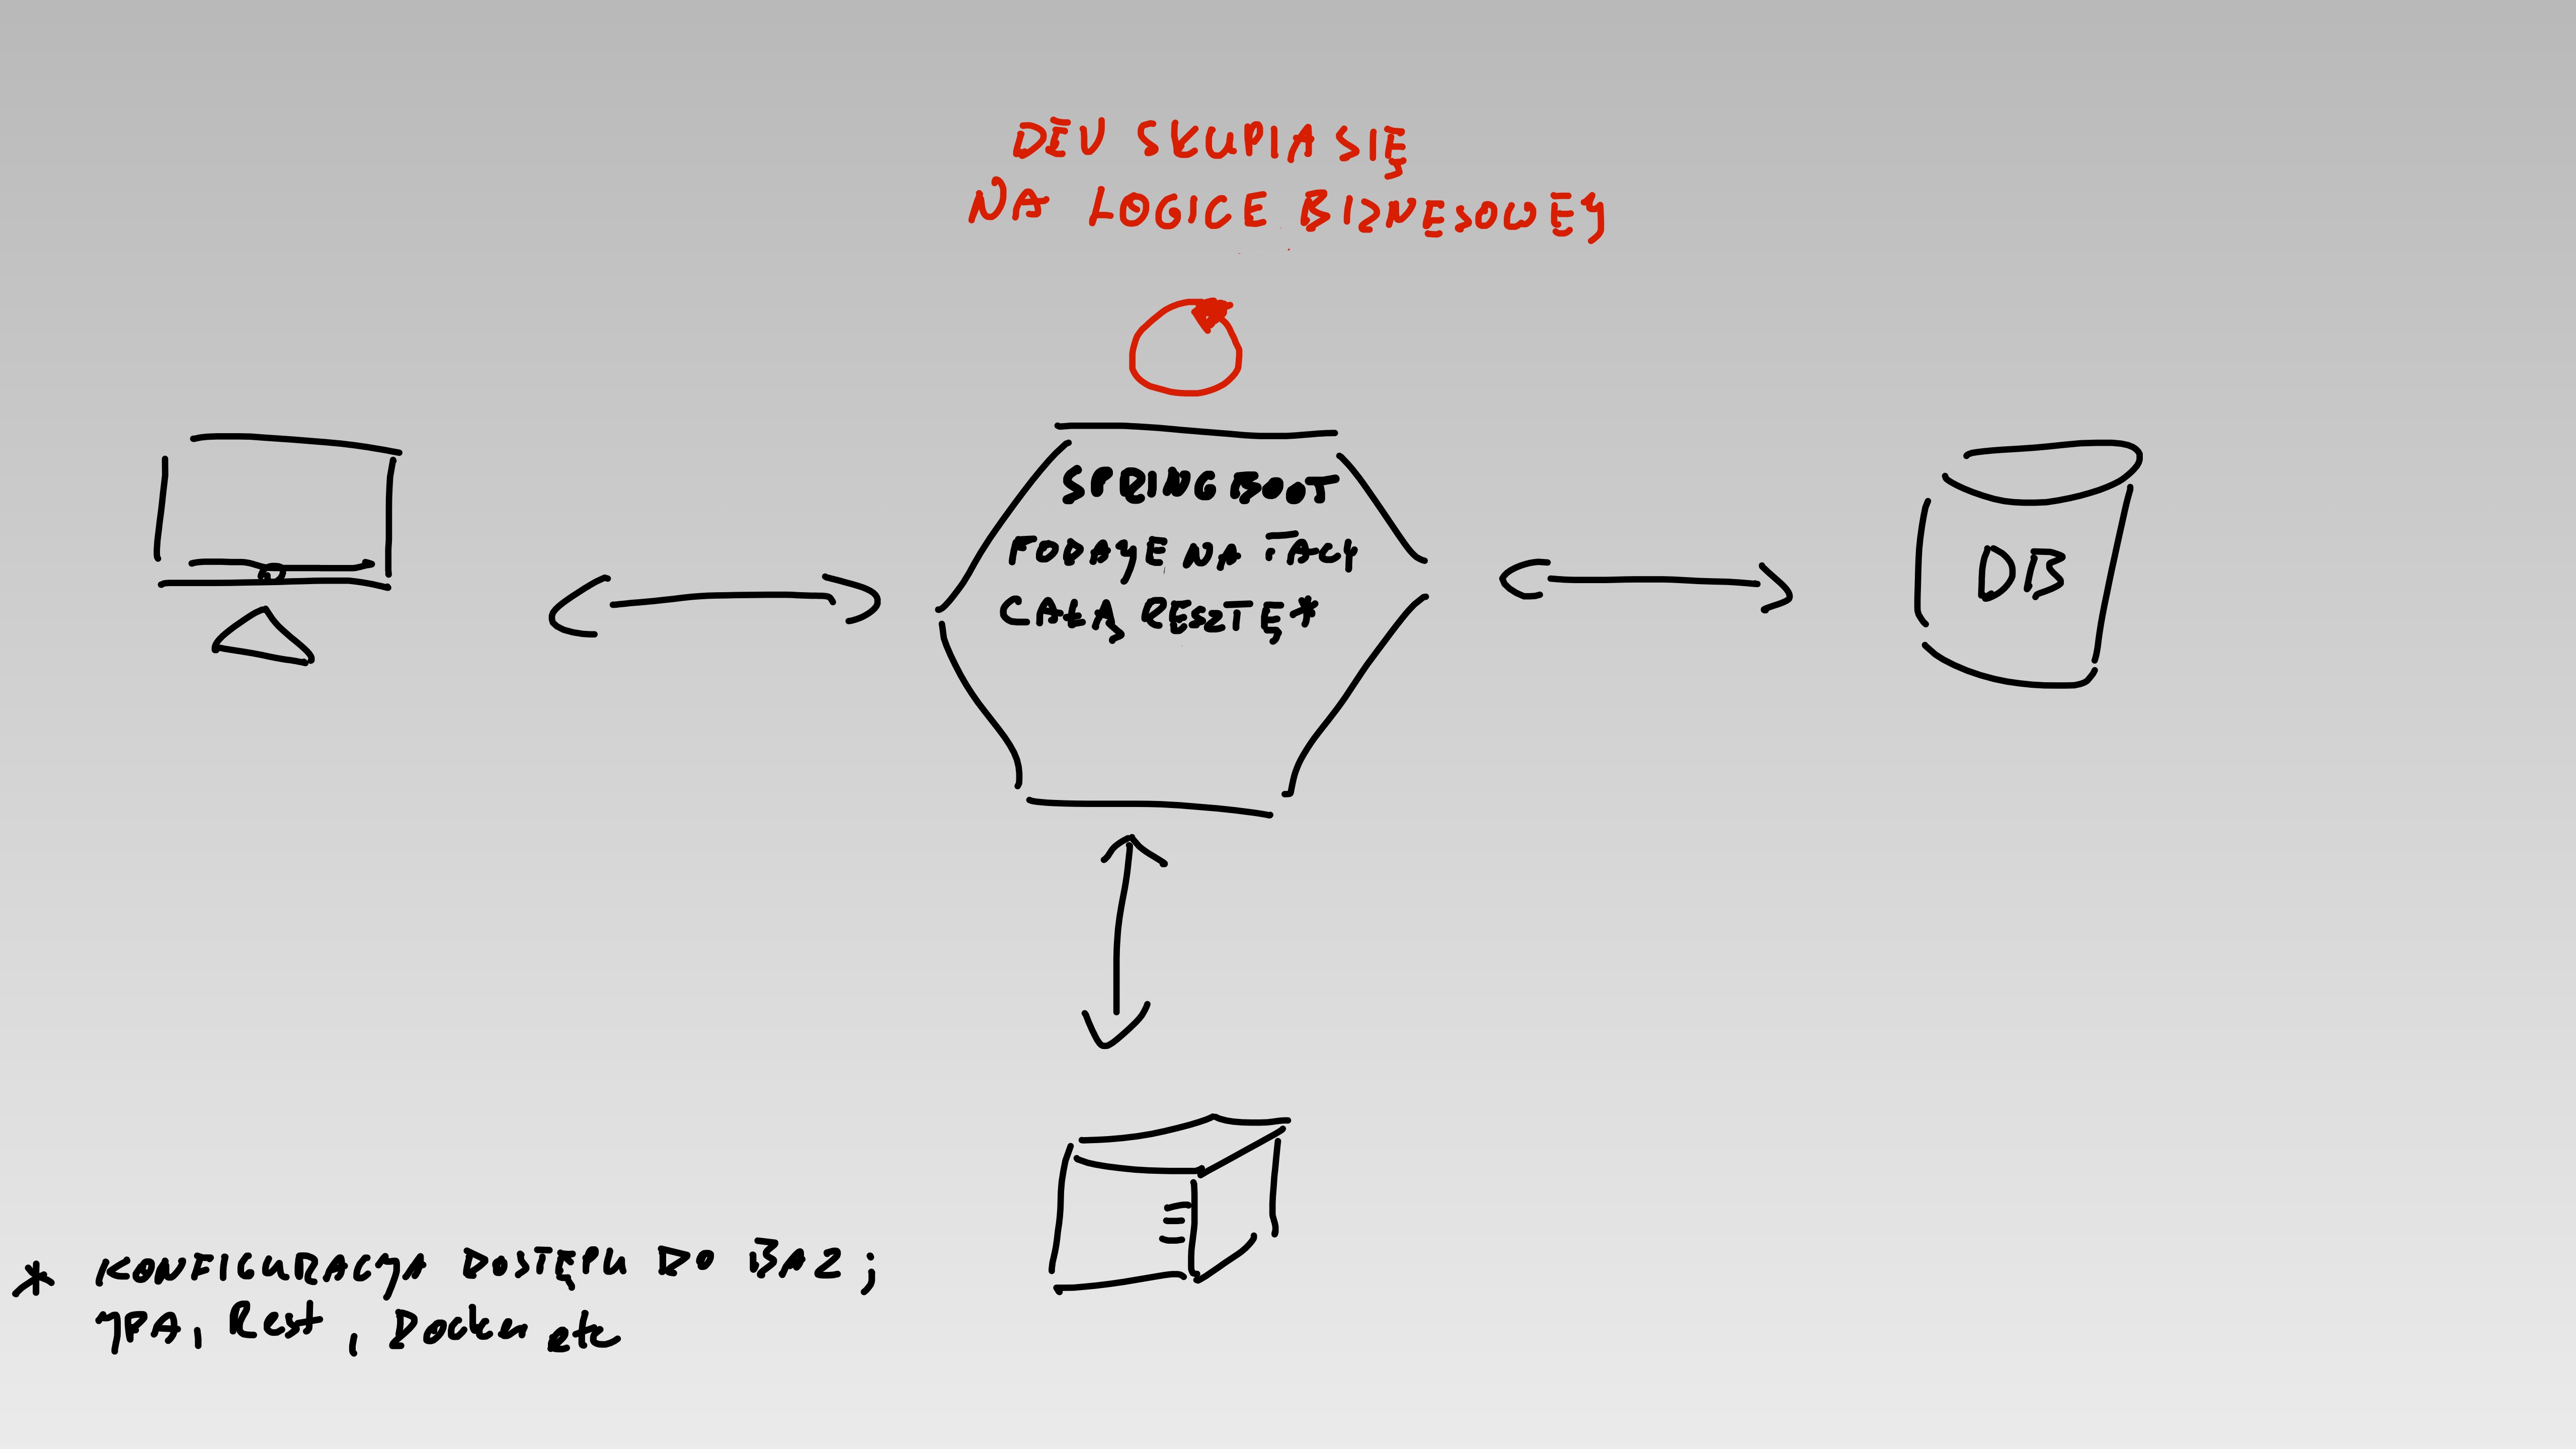 DEV SKUPIA SIĘ
NA LOGICE BIZNESOWEJ
SPRING BOOT
PODAJE NA TACY
CAŁĄ RESZTĘ*
DB
* KONFIGURACJA DOSTĘPU DO BAZ;
JPA, Rest, Docker etc